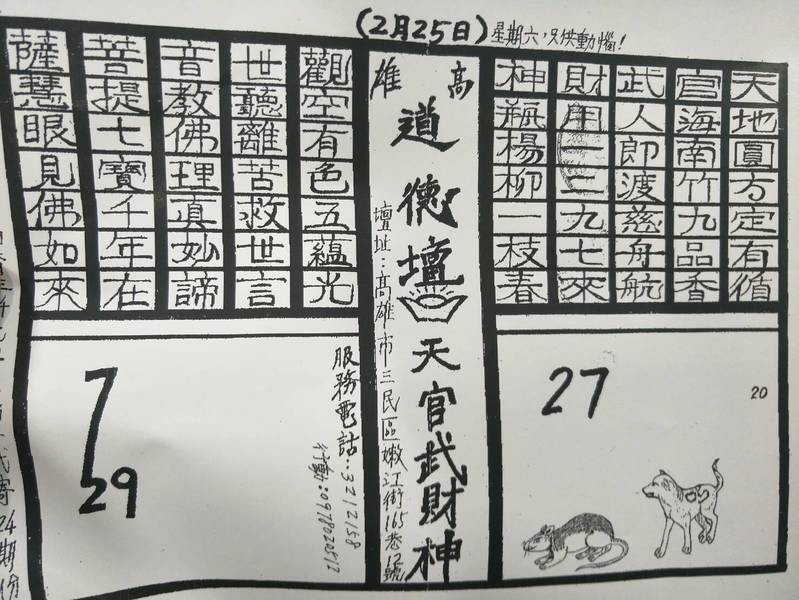 (2月25日)星期六,只供動惱!
高雄
道德壇
天官武財神
壇址:高雄市三民區嫩江街165巷12號
天地圓方定有循
官海南竹九品香
武人即渡慈舟航
財用一二九七來
神瓶楊柳一枝春
觀空有色五蘊光
世聽離苦救世言
音教佛理真妙諦
菩提七寶千年在
薩慧眼見佛如來
27
20
服務電話:3212158
行動:0978020517
7
29